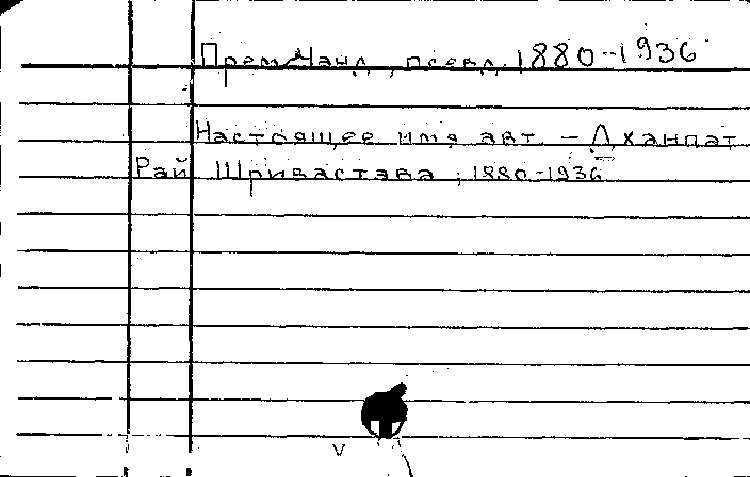 Прем Чанд, псевд, 1880-1936
Настоящее имя авт. - Дханпат
Рай Шривастава, 1880-1936
V